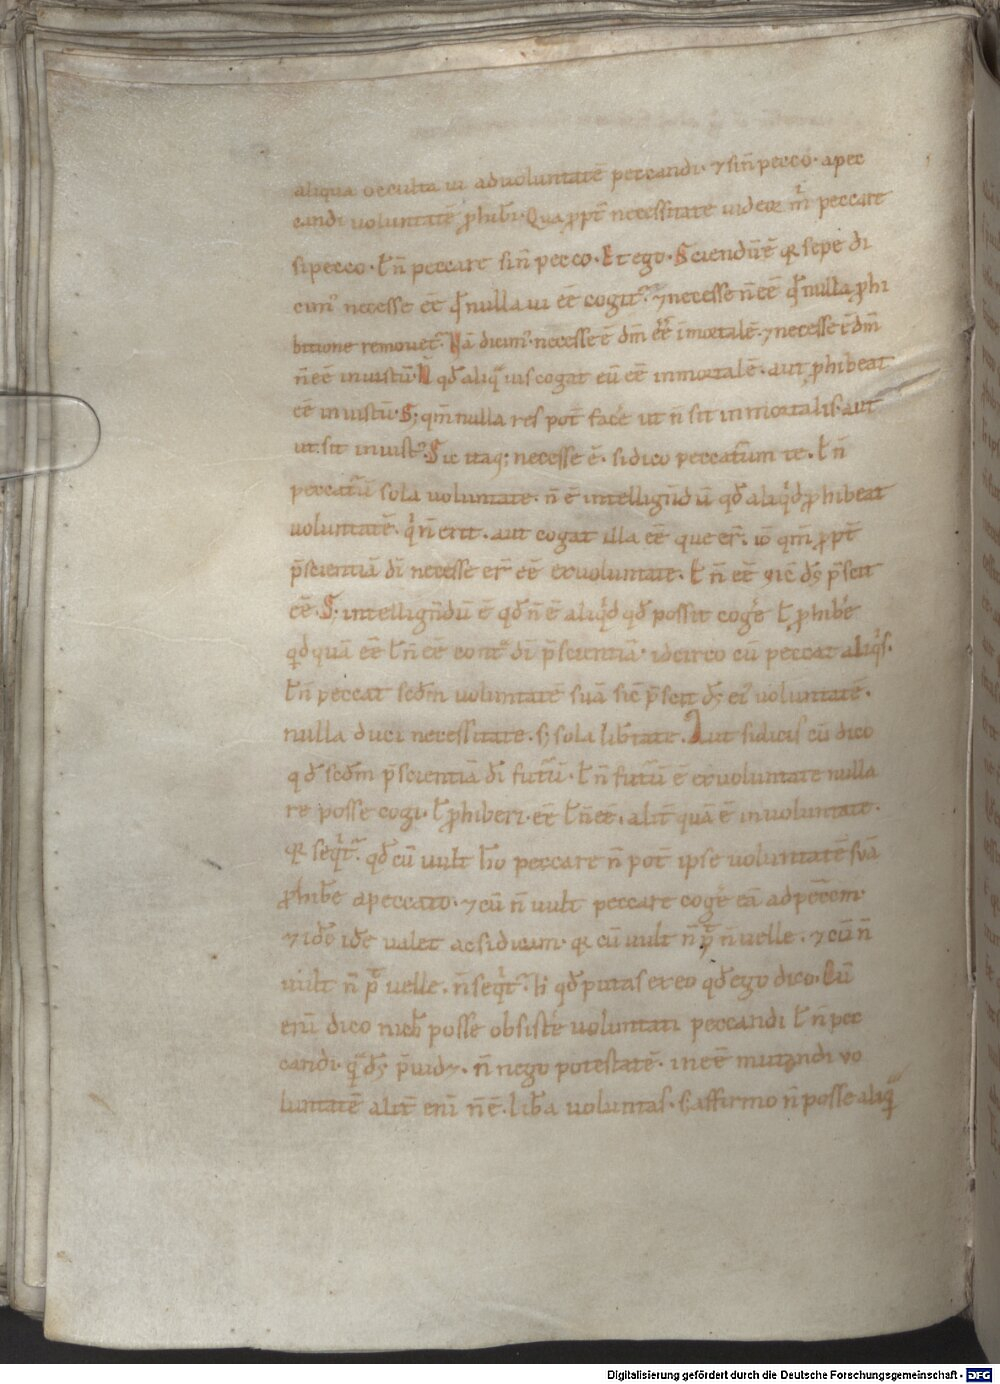 aliqua occulta ui ad uoluntatē peccandi · ⁊ si n̄ pecco · a pec
candi uoluntatē ꝓhib̄i · Qua ꝓpt̄ necessitate uideor m̄ peccare
si pecco · ł n̄ peccare si n̄ pecco · Et ego · Sciendū ē qꝛ sepe di
cim᷒ necesse eē qđ nulla ui eē cogit᷒ · ⁊ necesse n̄ eē qđ nulla ꝓhi
bitione remouet᷒ · Nā dicim᷒ · necesse ē dm̄ eē īmortalē · ⁊ necesse ē dm̄
n̄ eē iniustū · N̄ qđ aliq̄ uis cogat eū eē inmortalē · aut ꝓhibeat
eē iniustū · S; qm̄ nulla res pot̄ facē ut n̄ sit inmortalis · aut
ut sit iniust᷒ · Sic itaq; necesse ē · si dico peccat᷒um te · ł n̄
peccat᷒ū sola uoluntate · n̄ ē intellign̄dū qđ aliq̇d ꝓhibeat
uoluntatē · q̄ n̄ erit · aut cogat illa eē que er̄ · qm̄ ꝓpt̄
p̄scientiā di̅ necesse er̄ eē ex uoluntate · ł n̄ eē sic̄ ds̄ p̄scit
eē · S; intellign̄dū ē qđ n̄ ē aliq̇d qđ possit cogē ł ꝓhibē
qđquā eē ł n̄ eē cont̄ di̅ p̄scientiā · idcirco cū peccat aliq̇s ·
ł n̄ peccat scdm̄ uoluntatē suā sic̄ p̄scit ds̄; ei᷒ uoluntatē ·
nulla duci necessitate · s; sola lib̄tate · Aut si dicis cū dico
qđ scdm̄ p̄scientiā di̅ fut᷒ū · ł n̄ fut᷒ū ē ex uoluntate nulla
re posse cogi · ł ꝓhiberi · eē ł n̄ eē · alit̄ quā ē in uoluntate ·
qꝛ seq̇t᷒ · qđ cū uult ho̅ peccare n̄ pot̄ ipse uoluntatē suā
ꝓhibē a peccato · ⁊ cū n̄ uult peccare cogē eā ad pecc̄m ·
⁊ idō idē ualet ac si dicam · qꝛ cū uult n̄ p̄t n̄ uelle · ⁊ cū n̄
uult n̄ p̄t uelle · n̄ seq̇t᷒ h̄ qđ putas ex eo qđ ego dico · Cū
eni̅ dico nich̄ posse obsistē uoluntati peccandi ł n̄ pec
candi · q̄ ds̄ p̄uid⁊ · n̄ nego potestatē · in eē mutandi uo
luntatē alit̄ eni̅ n̄ ē · lib̄a uoluntas · s; affirmo n̄ posse aliq̄
Digitalisierung gefördert durch die Deutsche Forschungsgemeinschaft - DFG